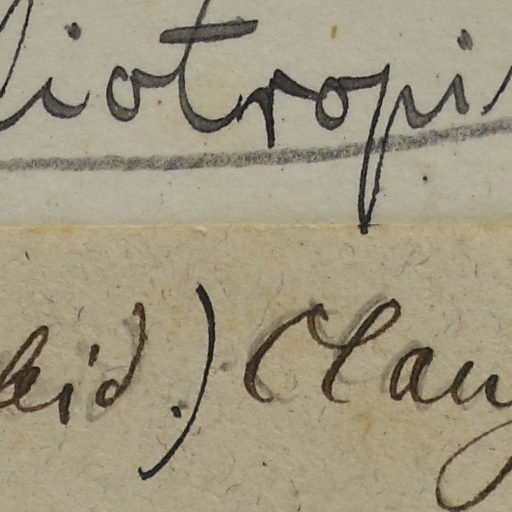 liotropi
eid.) Clay